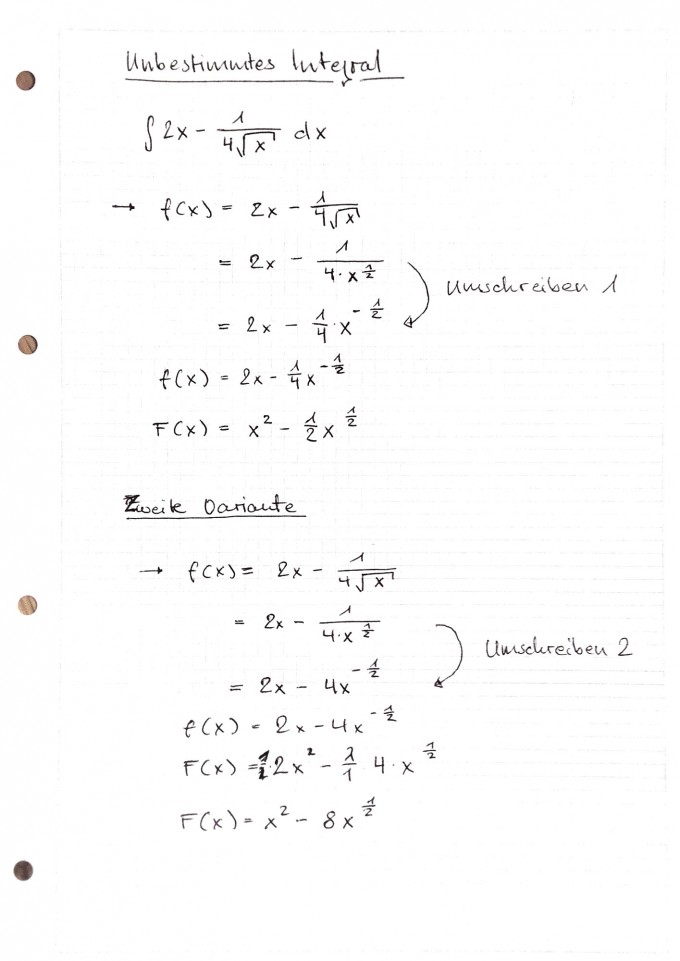 Unbestimmtes Integral
∫ 2x - 1/(4√x) dx
→ f(x) = 2x - 1/(4√x)
= 2x - 1/(4·x^(1/2))
Umschreiben 1
= 2x - 1/4·x^(-1/2)
f(x) = 2x - 1/4 x^(-1/2)
F(x) = x² - 1/2 x^(1/2)
Zweite Variante
→ f(x) = 2x - 1/(4√x)
= 2x - 1/(4·x^(1/2))
Umschreiben 2
= 2x - 4x^(-1/2)
f(x) = 2x - 4x^(-1/2)
F(x) = 1/2·2x² - 2/1 4·x^(1/2)
F(x) = x² - 8x^(1/2)